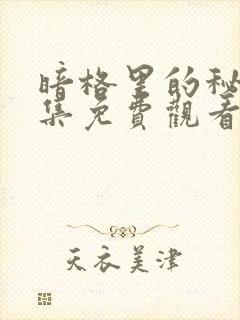 暗格里的秘
集免費觀看
天衣美津